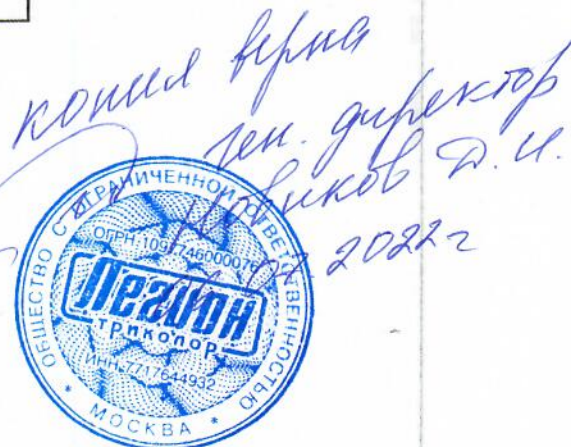 копия верна
ген. директор
Новиков Д.И.
07.2022г
ОБЩЕСТВО С ОГРАНИЧЕННОЙ ОТВЕТСТВЕННОСТЬЮ
* МОСКВА *
ОГРН
Легион
триколор
ИНН 7717644932